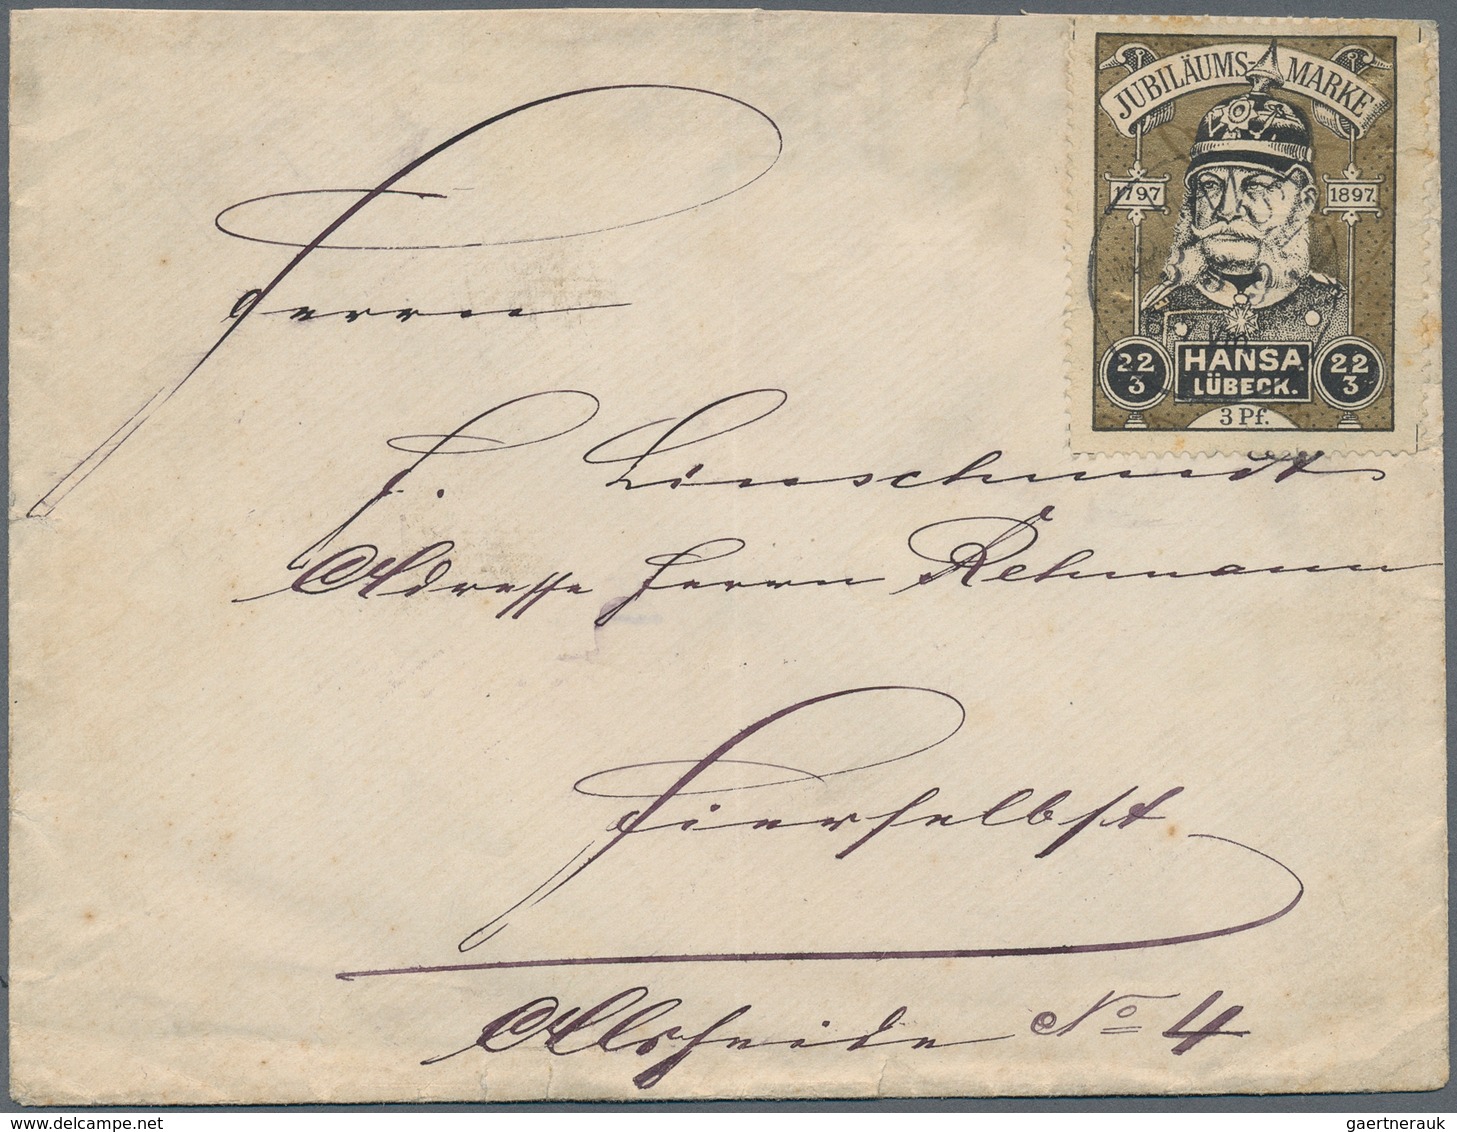 JUBILÄUMS-MARKE
1797 1897
22 3 HANSA LÜBECK. 22 3
3 Pf.
Herrn
F. Linschmidt
Adresse Herrn Rehmann
Hierselbst
No 4
www.delcampe.net
gaertnerauk